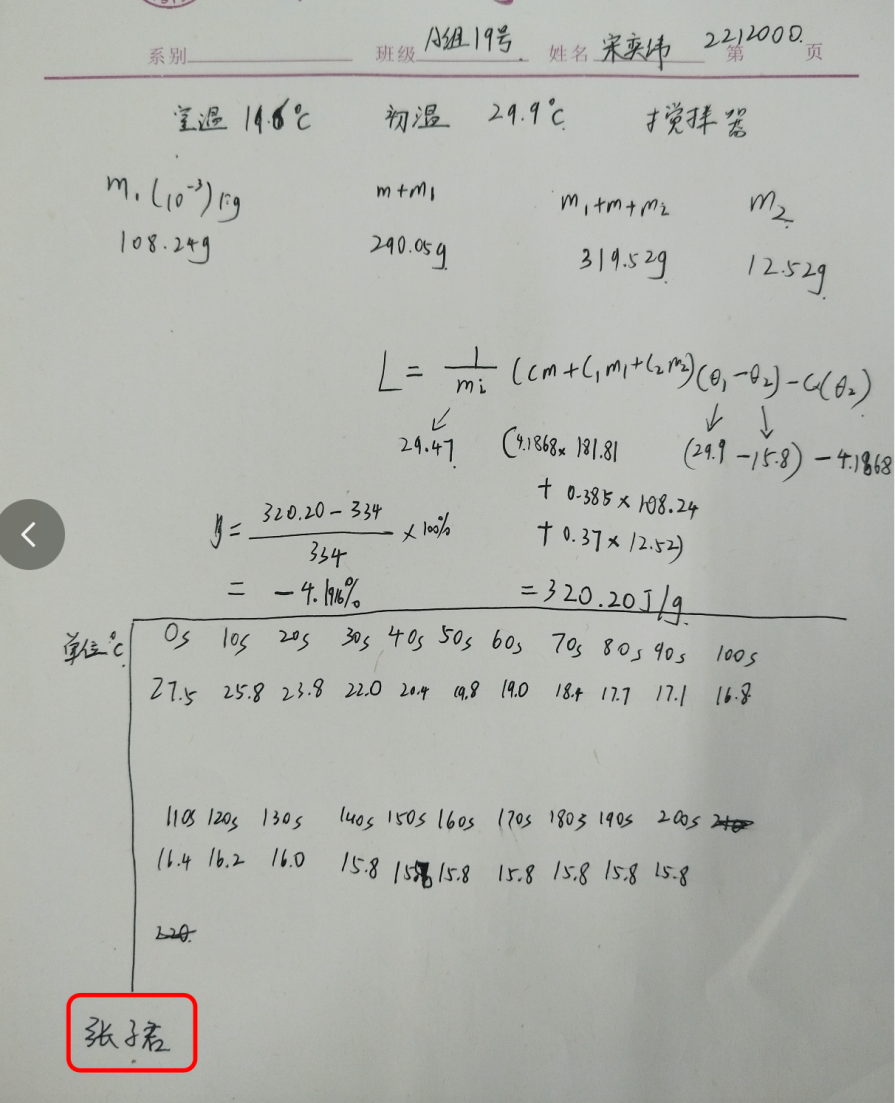 系别 班级 A组19号 姓名 宋奕纬 2212000. 第 页
室温 初温 29.9°C 搅拌器
m₁(10⁻³)kg m+m₁ m₁+m+mi m₂
108.24g 290.05g 319.52g 12.52g
L = 1/mi (cm+C₁m₁+C₂m₂)(θ₁-θ₂)-C(θ₂)
29.47 (4.1868× 181.81 (29.9 -15.8) - 4.1868
+ 0.385×108.24
y = (320.20-334)/334 ×100% + 0.37×12.52)
= -4.1916% =320.20J/g
单位°C 0s 10s 20s 30s 40s 50s 60s 70s 80s 90s 100s
27.5 25.8 23.8 22.0 20.4 19.8 19.0 18.4 17.7 17.1 16.8
110s 120s 130s 140s 150s 160s 170s 180s 190s 200s
16.4 16.2 16.0 15.8 15.8 15.8 15.8 15.8 15.8 15.8
张子君